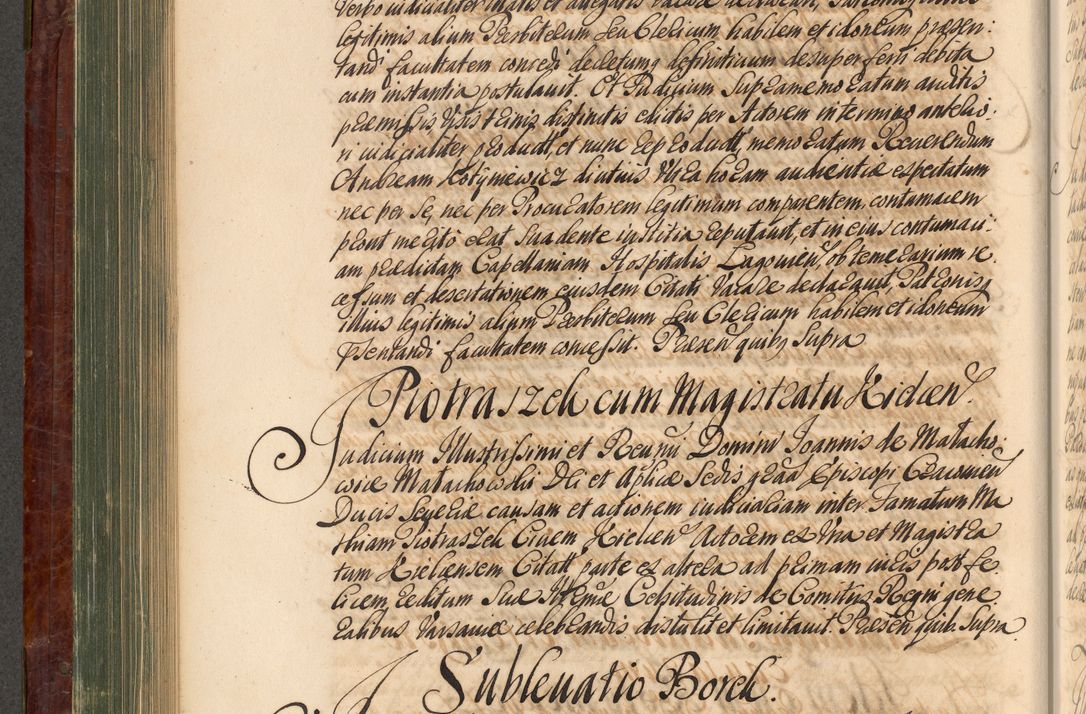 legitimis alium Presbiterum seu Clericum habilem et idoneum præsen:
tandi facultatem concedi decretumq definitivum desuper ferri debita
cum instantia postulavit. Et Judicium Supramemoratum auditis
præmissis distinctis editis per Actorem in termino antelio:
ri iudicialiter produdt, et nunc reprodudt, memoratum Reverendum
Andream Kotyniewicz diutius Ultra horam audientiæ expectatum
nec per se, nec per Procuratorem legitimum comparentem, contumacem
prout merito erat suadente iustitia reputavit, et in eius contumaci:
am prædictam Capellaniam Hospitalis Lagovien, ob temerarium re
cessum et desertationem eiusdem Citati Vacare declaravit, Patronisq
illius legitimis alium Presbiterum seu Clericum habilem et idoneum
Psentandi facultatem concessit. Præsen quibq Supra
Piotraszek cum Magistratu Kielcen.
Judicium Illustrissimi et Reumi Domini Joannis de Matacho:
wice Matachowski Dei et Aplicæ Sedis grãa Episcopi Cracovien
Ducis Severiæ causam et actionem iudicialem inter Famatum Ma
thiam Piotraszek Civem Kielcen Actorem ex Una et Magistra
tum Kielcensem Citatt parte ex altera ad primam iuris post fe
licem reditum Suæ Celsitudinis de Comitiis Regni gene
ralibus Varsaviæ celebrandis distulit et limitavit. Præsen quib. Supra
Sublevatio Borek.